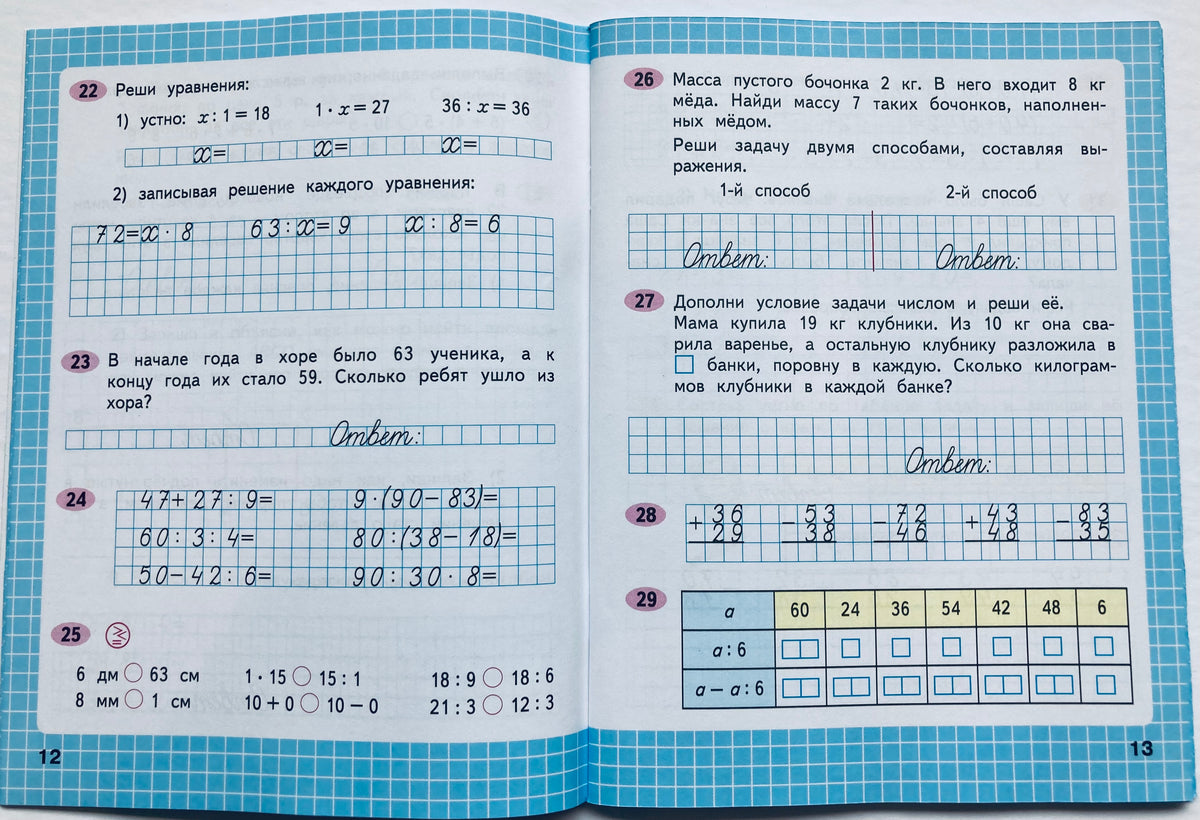 22 Реши уравнения:
1) устно: x : 1 = 18 1 · x = 27 36 : x = 36
x= x= x=
2) записывая решение каждого уравнения:
72=x · 8 63:x=9 x: 8=6
23 В начале года в хоре было 63 ученика, а к
концу года их стало 59. Сколько ребят ушло из
хора?
Ответ:
24 47+27:9= 9·(90−83)=
60:3:4= 80:(38−18)=
50−42:6= 90:30·8=
25
6 дм 63 см 1 · 15 15 : 1 18 : 9 18 : 6
8 мм 1 см 10 + 0 10 − 0 21 : 3 12 : 3
12
26 Масса пустого бочонка 2 кг. В него входит 8 кг
мёда. Найди массу 7 таких бочонков, наполнен-
ных мёдом.
Реши задачу двумя способами, составляя вы-
ражения.
1-й способ 2-й способ
Ответ: Ответ:
27 Дополни условие задачи числом и реши её.
Мама купила 19 кг клубники. Из 10 кг она сва-
рила варенье, а остальную клубнику разложила в
банки, поровну в каждую. Сколько килограм-
мов клубники в каждой банке?
Ответ:
28 + 36 − 53 − 72 + 43 − 83
29 38 46 48 35
29 a 60 24 36 54 42 48 6
a : 6
a − a : 6
13